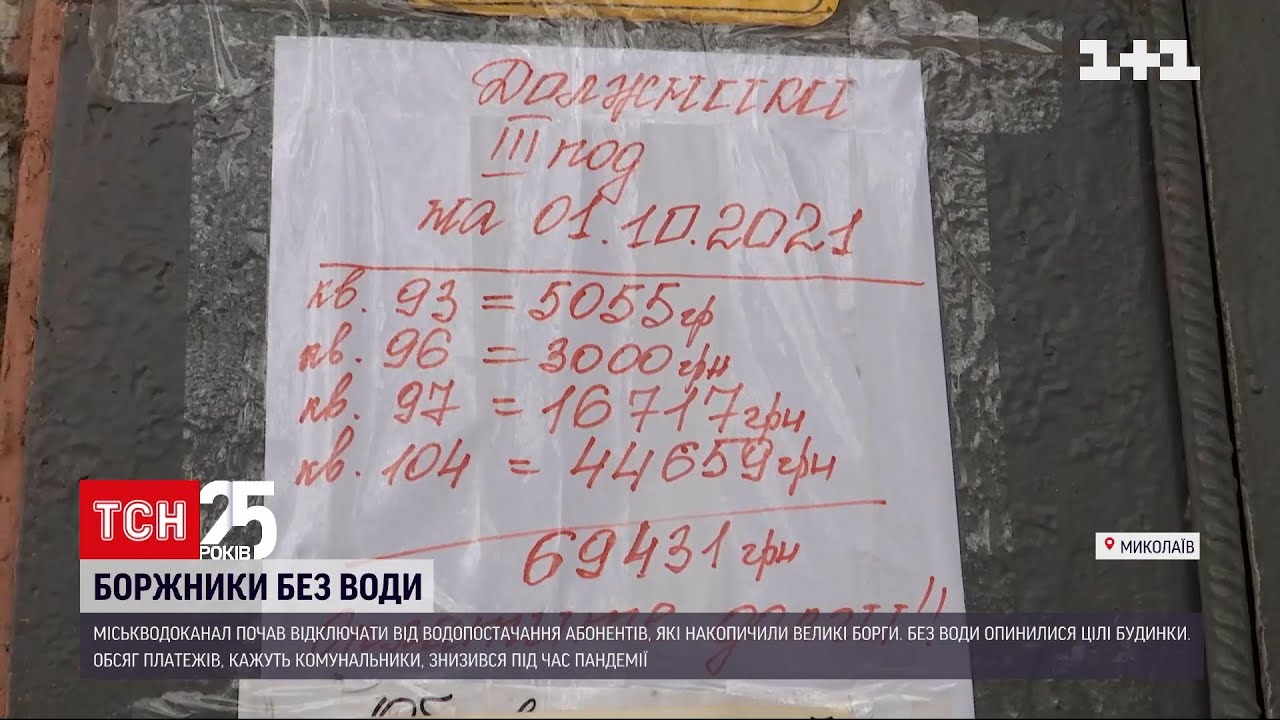 1+1
Должники
III под
на 01.10.2021
кв. 93 = 5055гр
кв. 96 = 3000грн
кв. 97 = 16717грн
кв. 104 = 44659грн
69431грн
ТСН 25 РОКІВ
МИКОЛАЇВ
БОРЖНИКИ БЕЗ ВОДИ
МІСЬКВОДОКАНАЛ ПОЧАВ ВІДКЛЮЧАТИ ВІД ВОДОПОСТАЧАННЯ АБОНЕНТІВ, ЯКІ НАКОПИЧИЛИ ВЕЛИКІ БОРГИ. БЕЗ ВОДИ ОПИНИЛИСЯ ЦІЛІ БУДИНКИ.
ОБСЯГ ПЛАТЕЖІВ, КАЖУТЬ КОМУНАЛЬНИКИ, ЗНИЗИВСЯ ПІД ЧАС ПАНДЕМІЇ